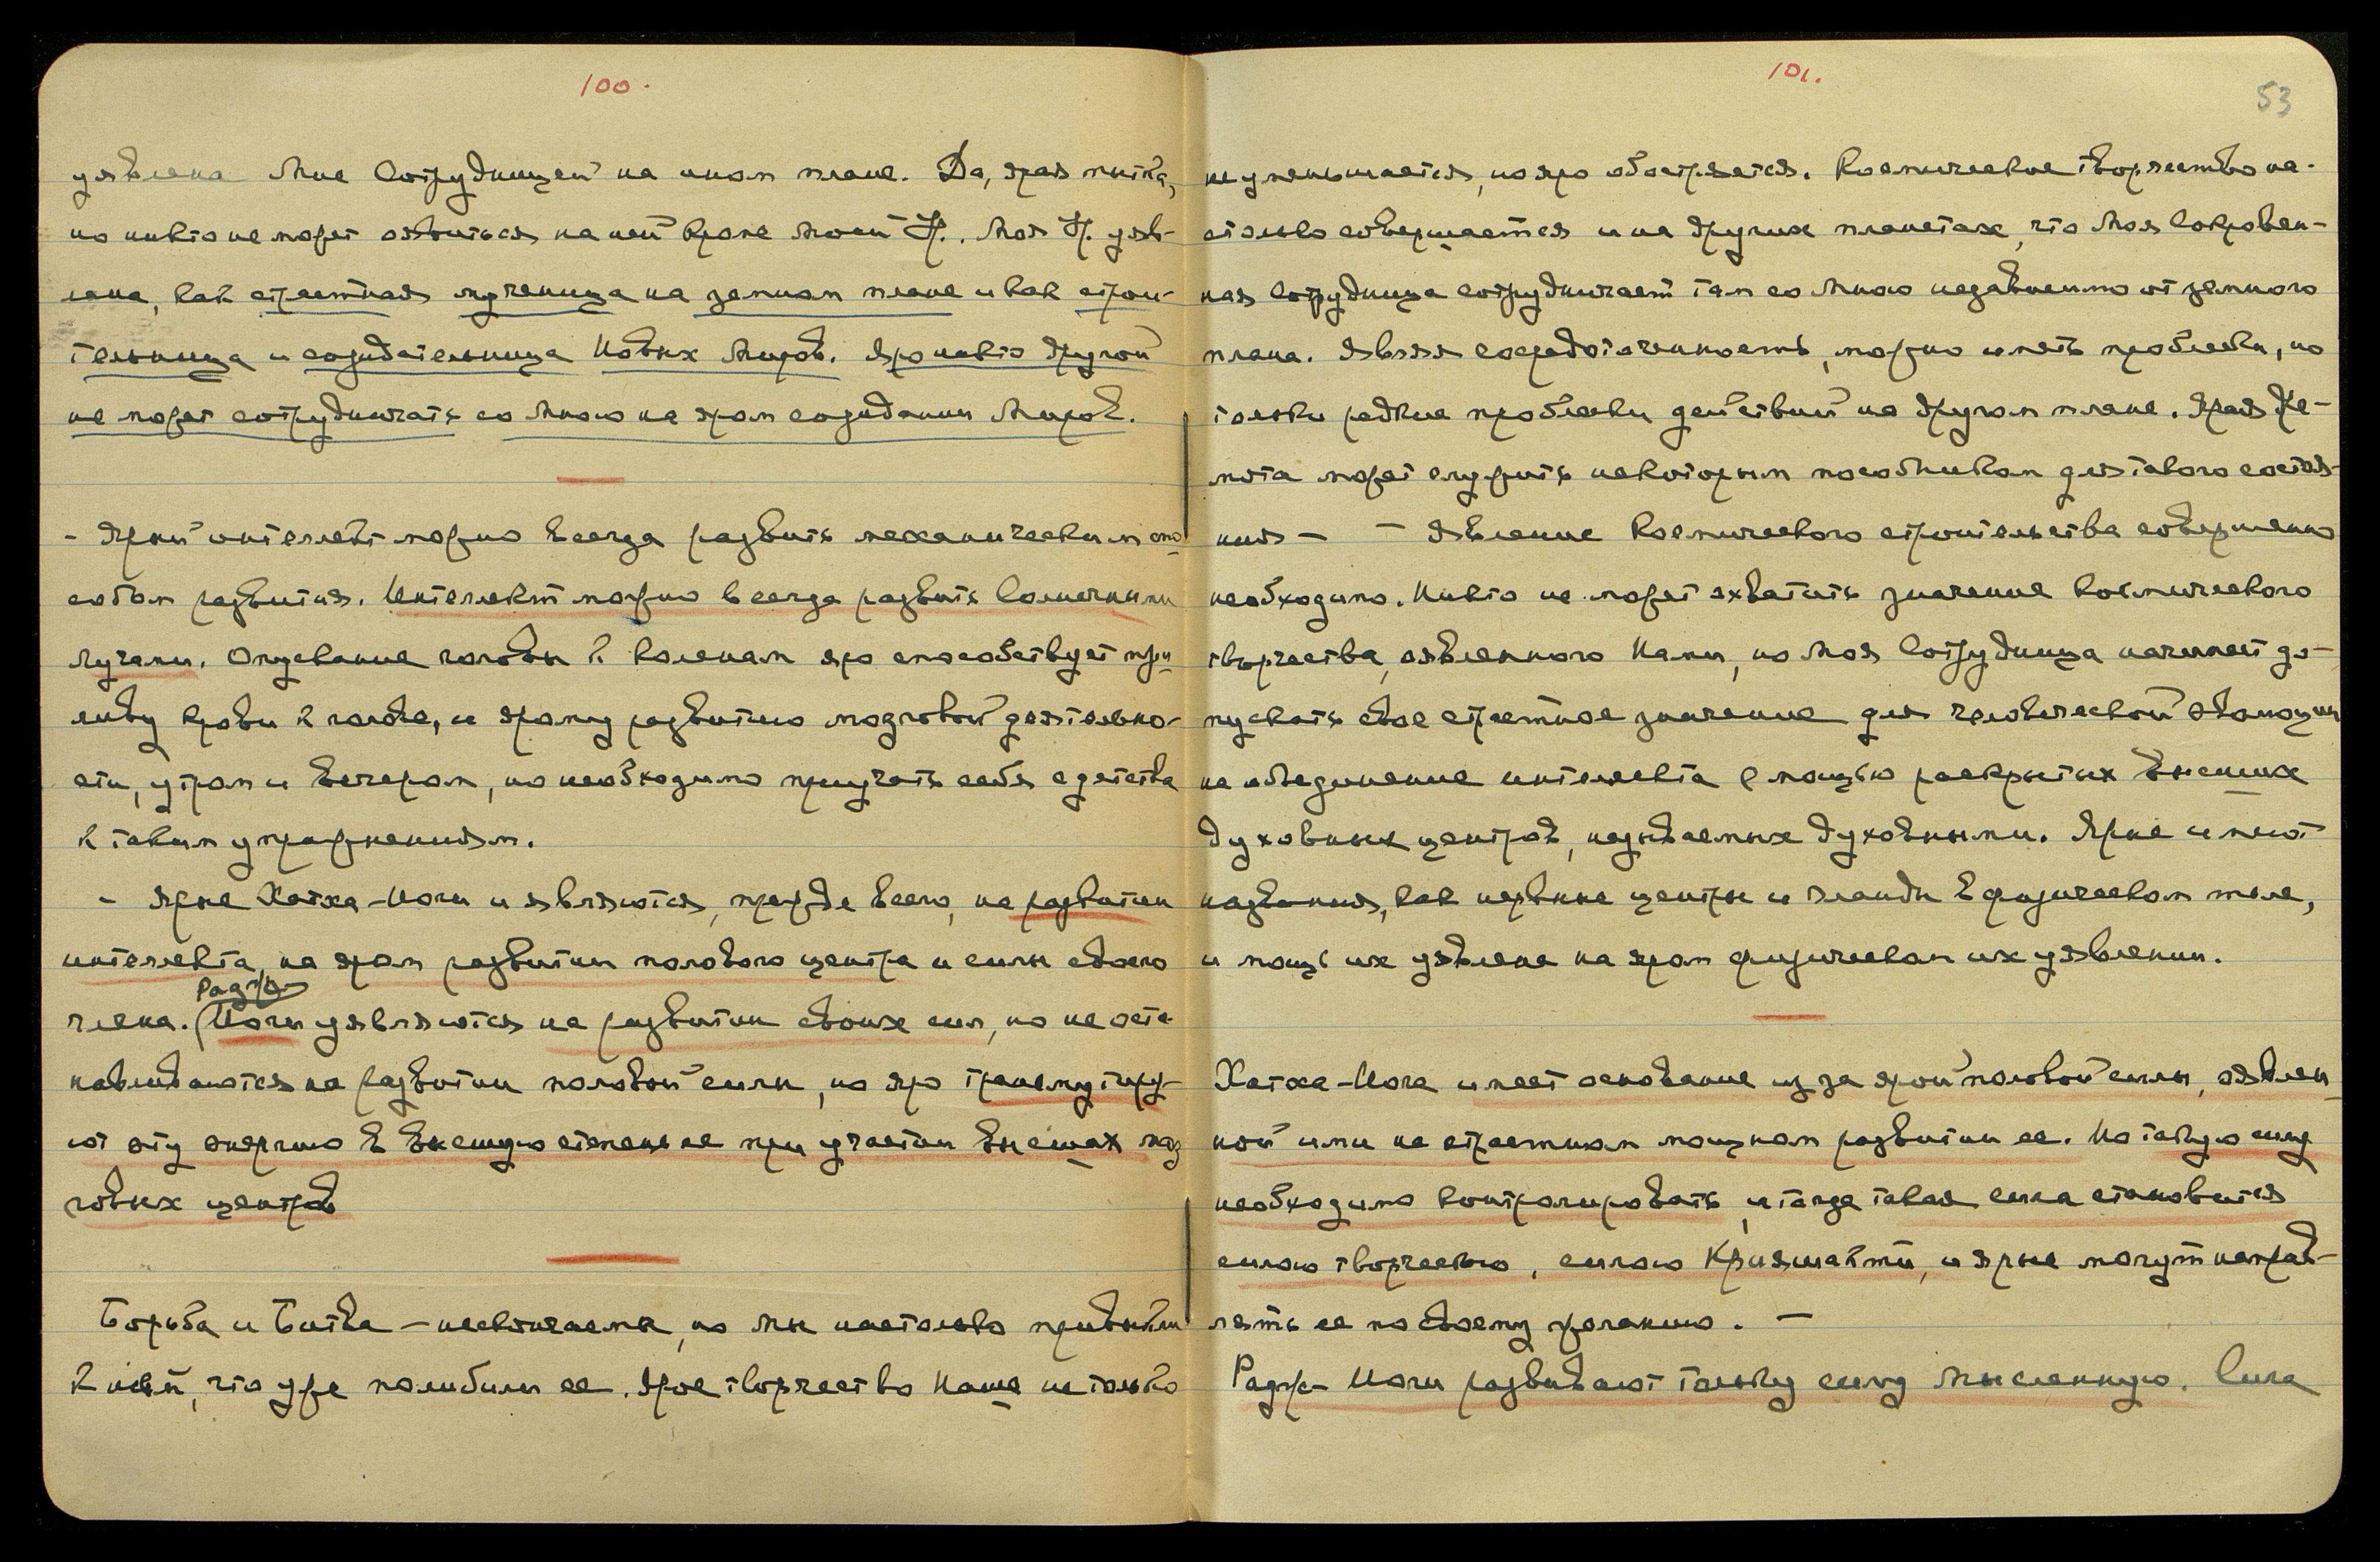 100.
уявлена Мне Сотрудницей на ином плане. Да, ярая мысль,
но никто не может явиться на ней кроме Моей У. Моя У. уяв-
лена, как страстная мученица на земном плане и как строи-
тельница и созидательница Новых Миров. Яро никто другой
не может сотрудничать со Мною на яром созидании Миров.
- Ярый интеллект можно всегда развить механическим спо-
собом развития. Интеллект можно всегда развить Солнечными
Лучами. Опускание головы к коленам яро способствует при-
ливу крови к голове, и ярому развитию мозговой деятельно-
сти, утром и вечером, но необходимо приучать себя с детства
к таким упражнениям.
- Ярые Хатха-Иоги и являются, прежде всего, на развитии
интеллекта, на яром развитии полового центра и силы своего
Радж-
члена. (Иоги уявляются на развитии своих сил, но не оста-
навливаются на развитии половой силы, но яро трансмутиру-
ют эту энергию в высшую степень ее при участии высших моз-
говых центров
Борьба и Битва – нескончаемы, но мы настолько привыкли
к ней, что уже полюбили ее. Ярое творчество Наше не только
101.
53
не уменьшается, но яро обостряется. Космическое творчество на-
столько совершается и на других планетах, что Моя Сокровен-
ная Сотрудница сотрудничает там со Мною независимо от земного
плана. Являя сосредоточенность, можно иметь проблески, но
только редкие проблески действий на другом плане. Ярая Дре-
мота может служить некоторым пособником для такого состоя-
ния – – Явление Космического строительства совершенно
необходимо. Никто не может охватить значение космического
творчества, явленного Нами, но Моя Сотрудница начинает до-
пускать свое страстное значение для человеческой эволюции
на объединение интеллекта с мощью раскрытых высших
духовных центров, называемых духовными. Ярые имеют
названия, как нервные центры и гланды в физическом теле,
и мощь их уявлена на яром физическом их уявлении.
Хатха-Иога имеет основание из за ярой половой силы, явлен-
ной ими на страстном мощном развитии ее. Но такую силу
необходимо контролировать, и тогда такая сила становится
силою творческою, силою Крияшакти, и ярые могут направ-
лять ее по своему желанию. –
Радж-Иоги развивают только силу мысленную. Сила